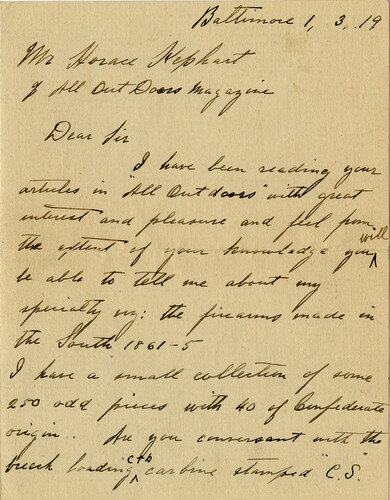 Baltimore 1, 3, 19
Mr Horace Kephart
of All Out Doors Magazine
Dear Sir
I have been reading your
articles in "All Outdoors" with great
interest and pleasure and feel from
the extent of your knowledge you will
be able to tell me about my
specialty viz: the firearms made in
the South 1861-5
I have a small collection of some
250 odd pieces with 40 of Confederate
origin. Are you conversant with the
breech loading carbine stamped "C.S."